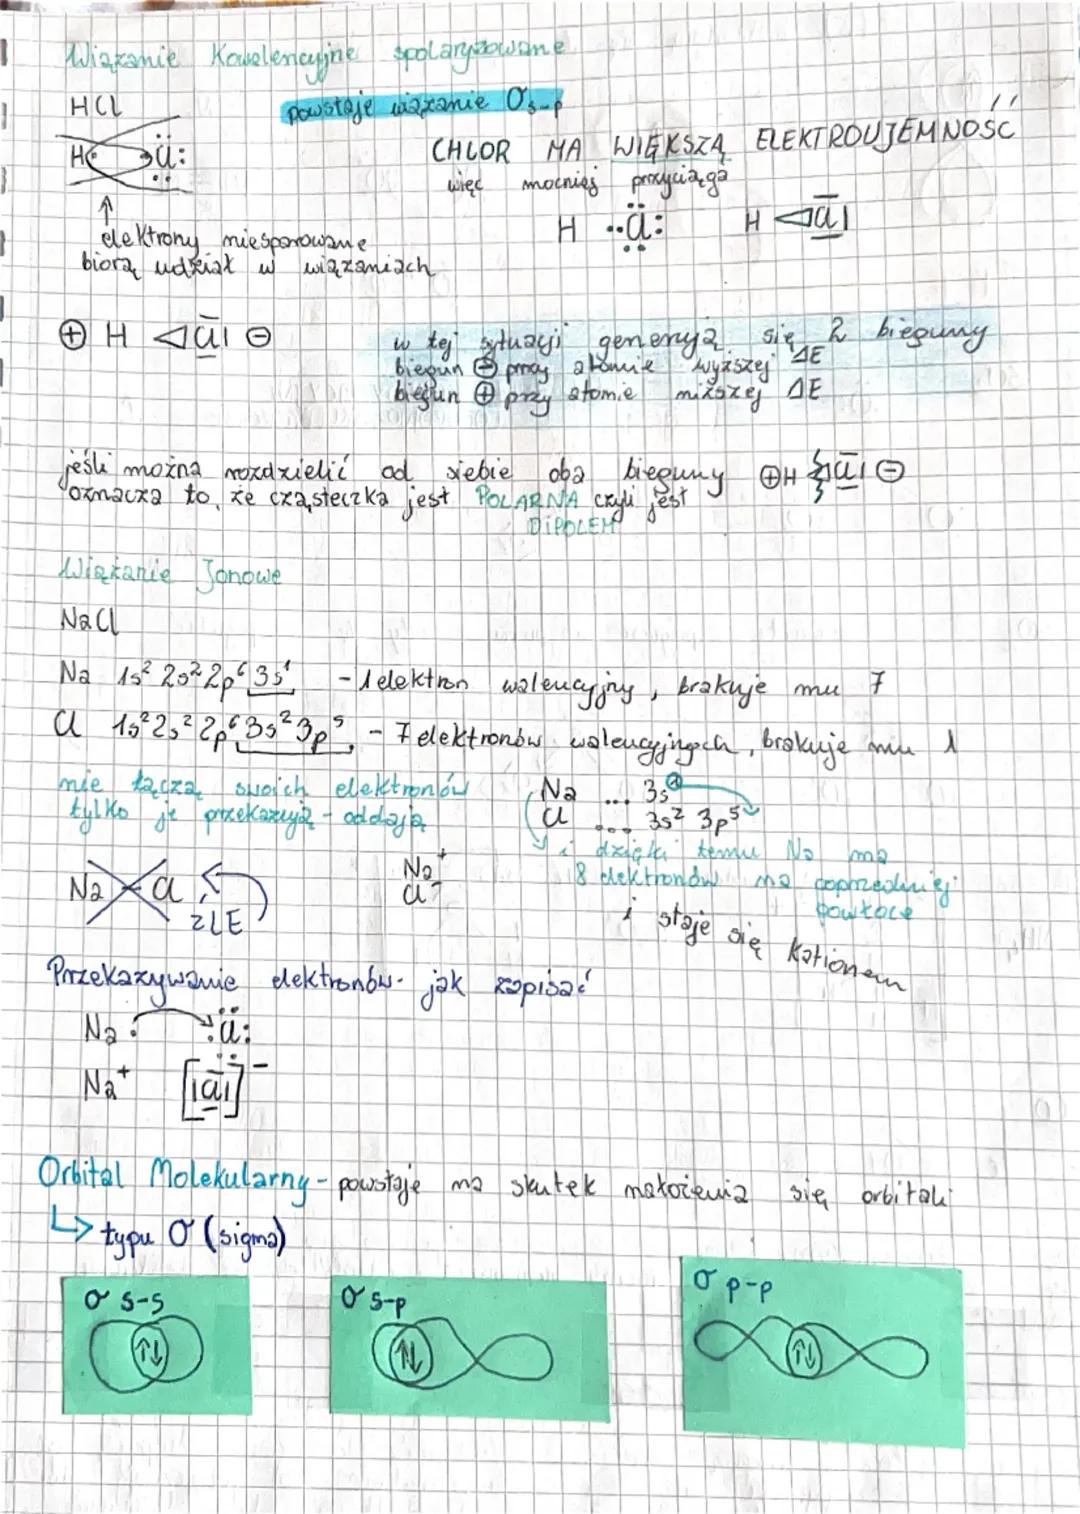 Wiązanie Kowalencyjne spolaryzowane
HCl
powstaje wiązanie σs-p
H Cl:
CHLOR MA WIĘKSZĄ ELEKTROUJEMNOŚĆ
więc mocniej przyciąga
H ··Cl: H ◁Cl|
↑
elektrony niesparowane
biorą udział w wiązaniach
⊕ H ◁Cl| ⊖
w tej sytuacji generują się 2 bieguny
biegun ⊖ przy atomie wyższej ΔE
biegun ⊕ przy atomie niższej ΔE
jeśli można rozdzielić od siebie oba bieguny ⊕H Cl| ⊖
oznacza to, że cząsteczka jest POLARNA czyli jest
DIPOLEM
Wiązanie Jonowe
NaCl
Na 1s² 2s² 2p⁶ 3s¹ - 1 elektron walencyjny, brakuje mu 7
Cl 1s² 2s² 2p⁶ 3s² 3p⁵ - 7 elektronów walencyjnych, brakuje mu 1
nie łączą swoich elektronów
tylko je przekazują - oddają
Na ... 3s¹
Cl ... 3s² 3p⁵
i dzięki temu Na ma
8 elektronów na poprzedniej
powłoce
i staje się kationem
Na Cl
ŹLE
Na⁺
Cl⁻
Przekazywanie elektronów - jak zapisać
Na· :Cl:
Na⁺ [|Cl|]⁻
Orbital Molekularny - powstaje na skutek nałożenia się orbitali
↳ typu σ (sigma)
σ s-s
↑↓
σ s-p
↑↓
σ p-p
↑↓